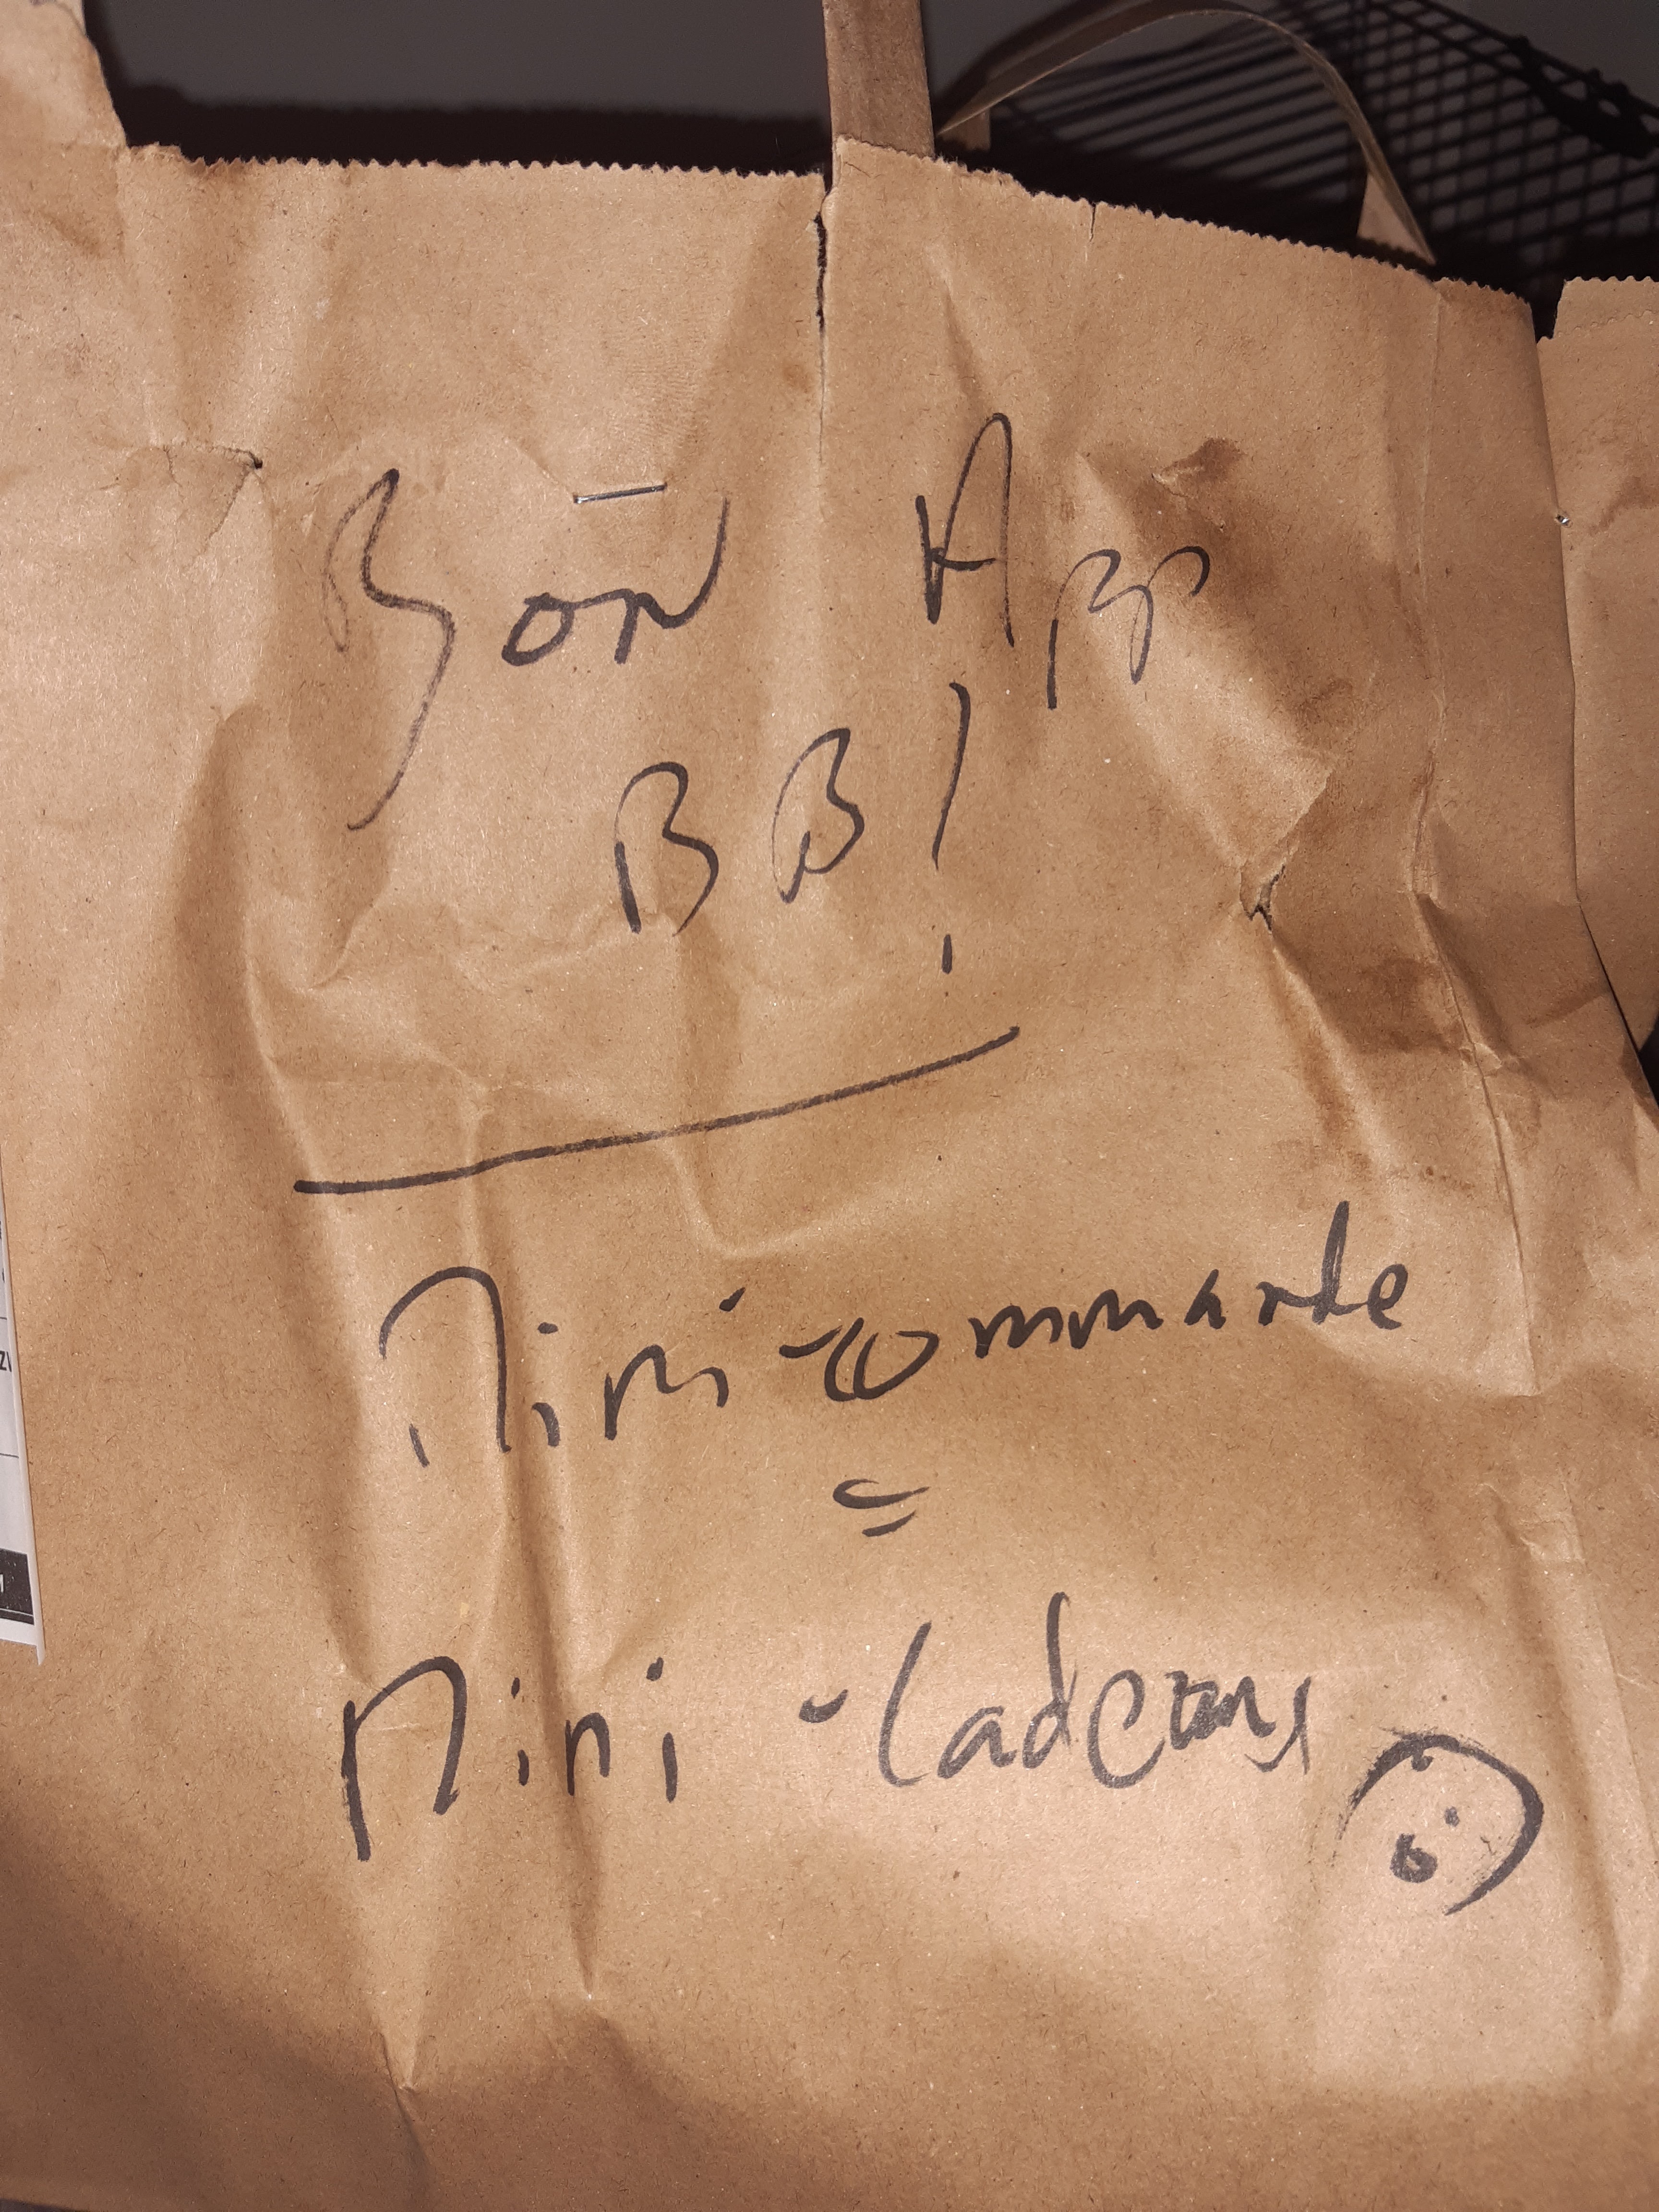 Bon App
BB!
Mini-commande
=
Mini-Cadeaux